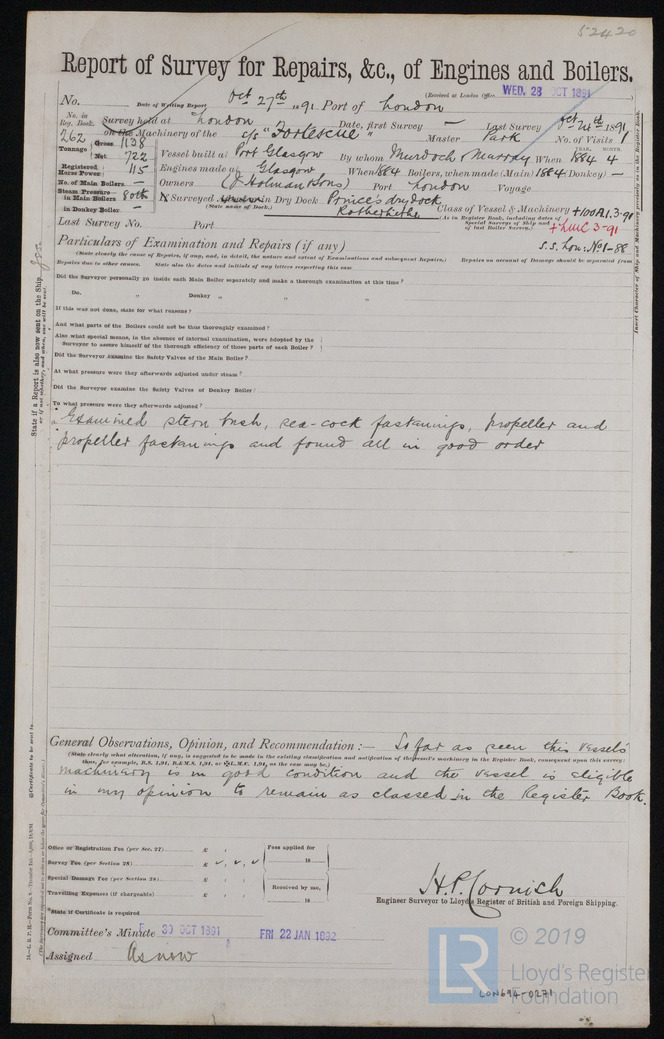 52420
Report of Survey for Repairs, &c., of Engines and Boilers.
(Received at London Office WED. 28 OCT 1891
No. Date of Writing Report Oct 27th 1891 Port of London
No. in Reg. Book. Survey held at London Date, first Survey — Last Survey Oct 24th 1891
262 on the Machinery of the S/S "Fortescue" Master Park No. of Visits 1
Tonnage Gross 1138
Net 722 Vessel built at Port Glasgow By whom Murdoch & Murray When 1884 4
YEAR. MONTH.
Registered Horse Power 115 Engines made at Glasgow When 1884 Boilers, when made (Main) 1884 (Donkey) —
No. of Main Boilers — Owners (J Holman & Sons) Port London Voyage
Steam Pressure in Main Boilers 80lb Surveyed in Dry Dock Prince's dry dock
in Donkey Boiler — (State name of Dock.) Rotherhithe Class of Vessel & Machinery +100A1.3-91
(As in Register Book, including dates of Special Surveys of Ship and of last Boiler Survey.) +LMC 3-91
Last Survey No. Port
S.S. Lon: No1-88
Particulars of Examination and Repairs (if any)
(State clearly the cause of Repairs, if any, and, in detail, the nature and extent of Examinations and subsequent Repairs.) Repairs on account of Damage should be separated from
Repairs due to other causes. State also the dates and initials of any letters respecting this case
Did the Surveyor personally go inside each Main Boiler separately and make a thorough examination at this time?
Do. " Donkey " " "
If this was not done, state for what reasons?
And what parts of the Boilers could not be thus thoroughly examined?
Also what special means, in the absence of internal examination, were adopted by the
Surveyor to assure himself of the thorough efficiency of those parts of each Boiler?
Did the Surveyor examine the Safety Valves of the Main Boiler?
At what pressure were they afterwards adjusted under steam?
Did the Surveyor examine the Safety Valves of Donkey Boiler?
To what pressure were they afterwards adjusted?
Examined stern bush, sea-cock fastenings, propeller and
propeller fastenings and found all in good order
General Observations, Opinion, and Recommendation:— So far as seen this vessel's
(State clearly what alteration, if any, is suggested to be made in the existing classification and notification of the vessel's machinery in the Register Book, consequent upon this survey:
thus, for example, B.S. 1,91, B.&M.S. 1,91, or +L.M.C. 1,91, as the case may be.)
machinery is in good condition and the vessel is eligible
in my opinion to remain as classed in the Register Book.
Office or Registration Fee (per Sec. 27) £ : : Fees applied for
Survey Fee (per Section 28) £ 18
Special Damage Fee (per Section 28) £ : : Received by me,
Travelling Expenses (if chargeable) £ : : 18
H.P. Cornish
Engineer Surveyor to Lloyd's Register of British and Foreign Shipping.
*State if Certificate is required
Committee's Minute 30 OCT 1891 FRI 22 JAN 1892
Assigned As now
State if a Report is also now sent on the Ship Yes.
or if not whether, and when, one will be sent.
Insert Character of Ship and Machinery precisely as in the Register Book.
LR
© 2019
Lloyd's Register
Foundation
LON694-0271